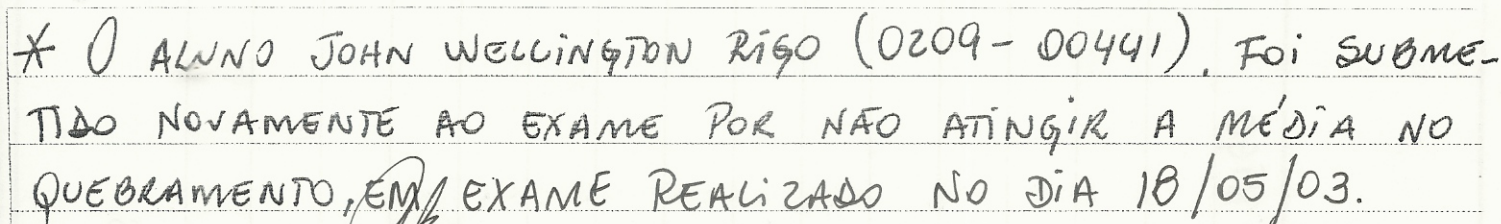 * O ALUNO JOHN WELLINGTON RIGO (0209-00441). FOI SUBME-
TIDO NOVAMENTE AO EXAME POR NÃO ATINGIR A MÉDIA NO
QUEBRAMENTO, EM EXAME REALIZADO NO DIA 18/05/03.